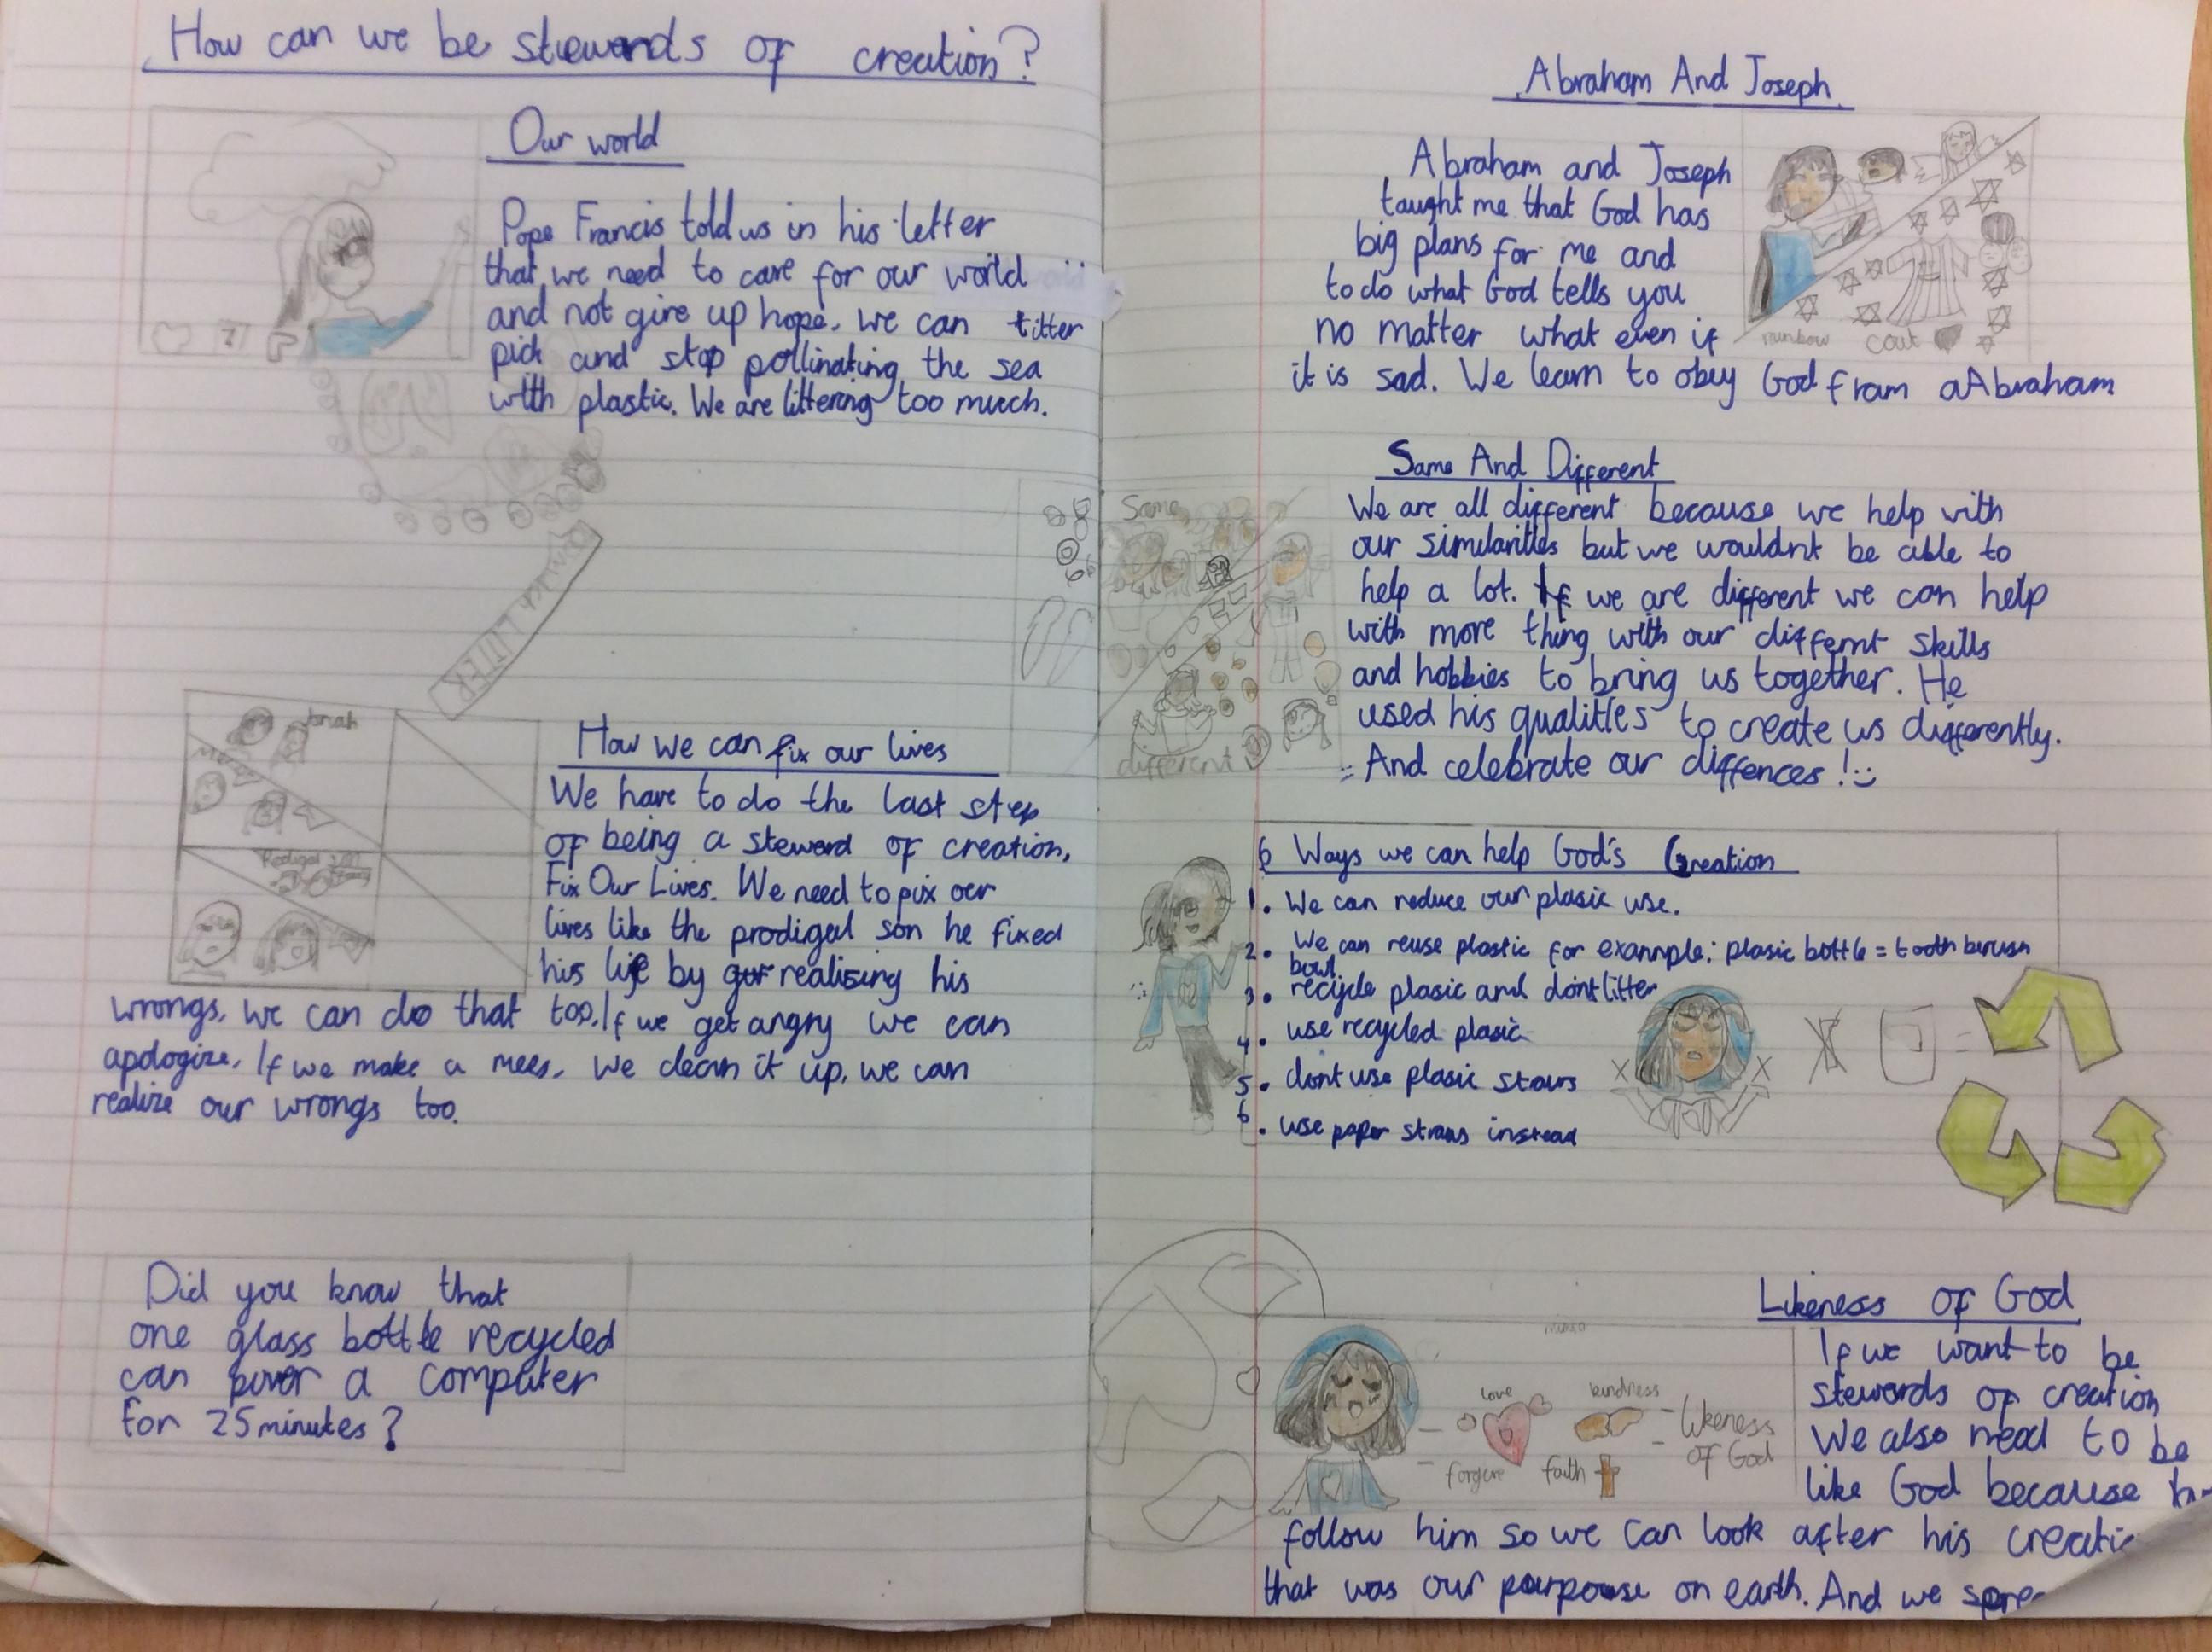 How can we be stewards of creation?
Our world
Pope Francis told us in his letter
that we need to care for our world
and not give up hope. We can titter
pick and stop pollinating the sea
with plastic. We are littering too much.
LITTER
How we can fix our lives
We have to do the last step
of being a steward of creation,
Fix Our Lives. We need to pix our
lives like the prodigal son he fixed
his life by realising his
wrongs. we can do that too. If we get angry we can
apologize. If we make a mees. We clean it up. we can
realize our wrongs too.
Jonah
Me
Prodigal son
Did you know that
one glass bottle recycled
can power a computer
for 25 minutes?
Abraham And Joseph
Abraham and Joseph
taught me that God has
big plans for me and
to do what God tells you
no matter what even if
it is sad. We learn to obey God fram aAbraham
rainbow coat
Same And Different
We are all different because we help with
our similarities but we wouldnt be able to
help a lot. If we are different we can help
with more thing with our differnt skills
and hobbies to bring us together. He
used his qualities to create us differently.
And celebrate our diffences! :)
Same
different
6 Ways we can help God's Creation
1. We can reduce our plasic use.
2. We can reuse plastic for example: plasic bottle = tooth brush
bowl.
3. recycle plasic and dont litter
4. use recycled plasic
5. dont use plasic staws
6. use paper straws instead
Likeness of God
If we want to be
stewards of creation
We also need to be
like God because
follow him so we can look after his
that was our purpouse on earth. And we
love
kindness
forgive
faith
likeness
of God